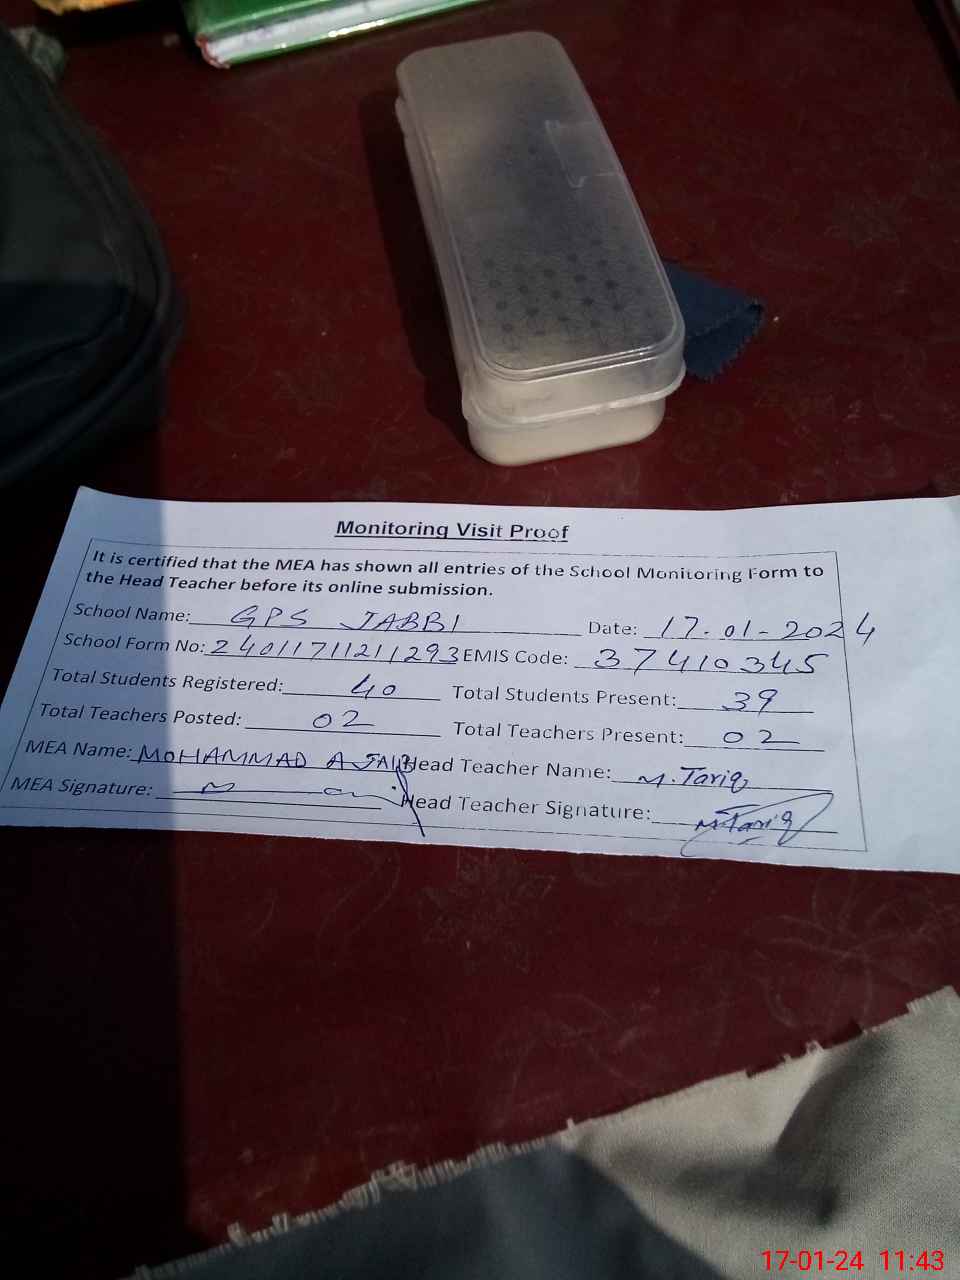 Monitoring Visit Proof
It is certified that the MEA has shown all entries of the School Monitoring Form to
the Head Teacher before its online submission.
School Name: GPS JABBI Date: 17-01-2024
School Form No: 24011711211293 EMIS Code: 37410345
Total Students Registered: 40 Total Students Present: 39
Total Teachers Posted: 02 Total Teachers Present: 02
MEA Name: MOHAMMAD Head Teacher Name: M. Tariq
MEA Signature: Head Teacher Signature: M Tariq
17-01-24 11:43